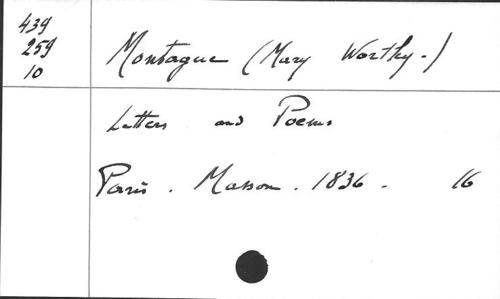 439
259
10
Montague (Mary Worthy-)
Letters and Poems
Paris. Masson. 1836. 16